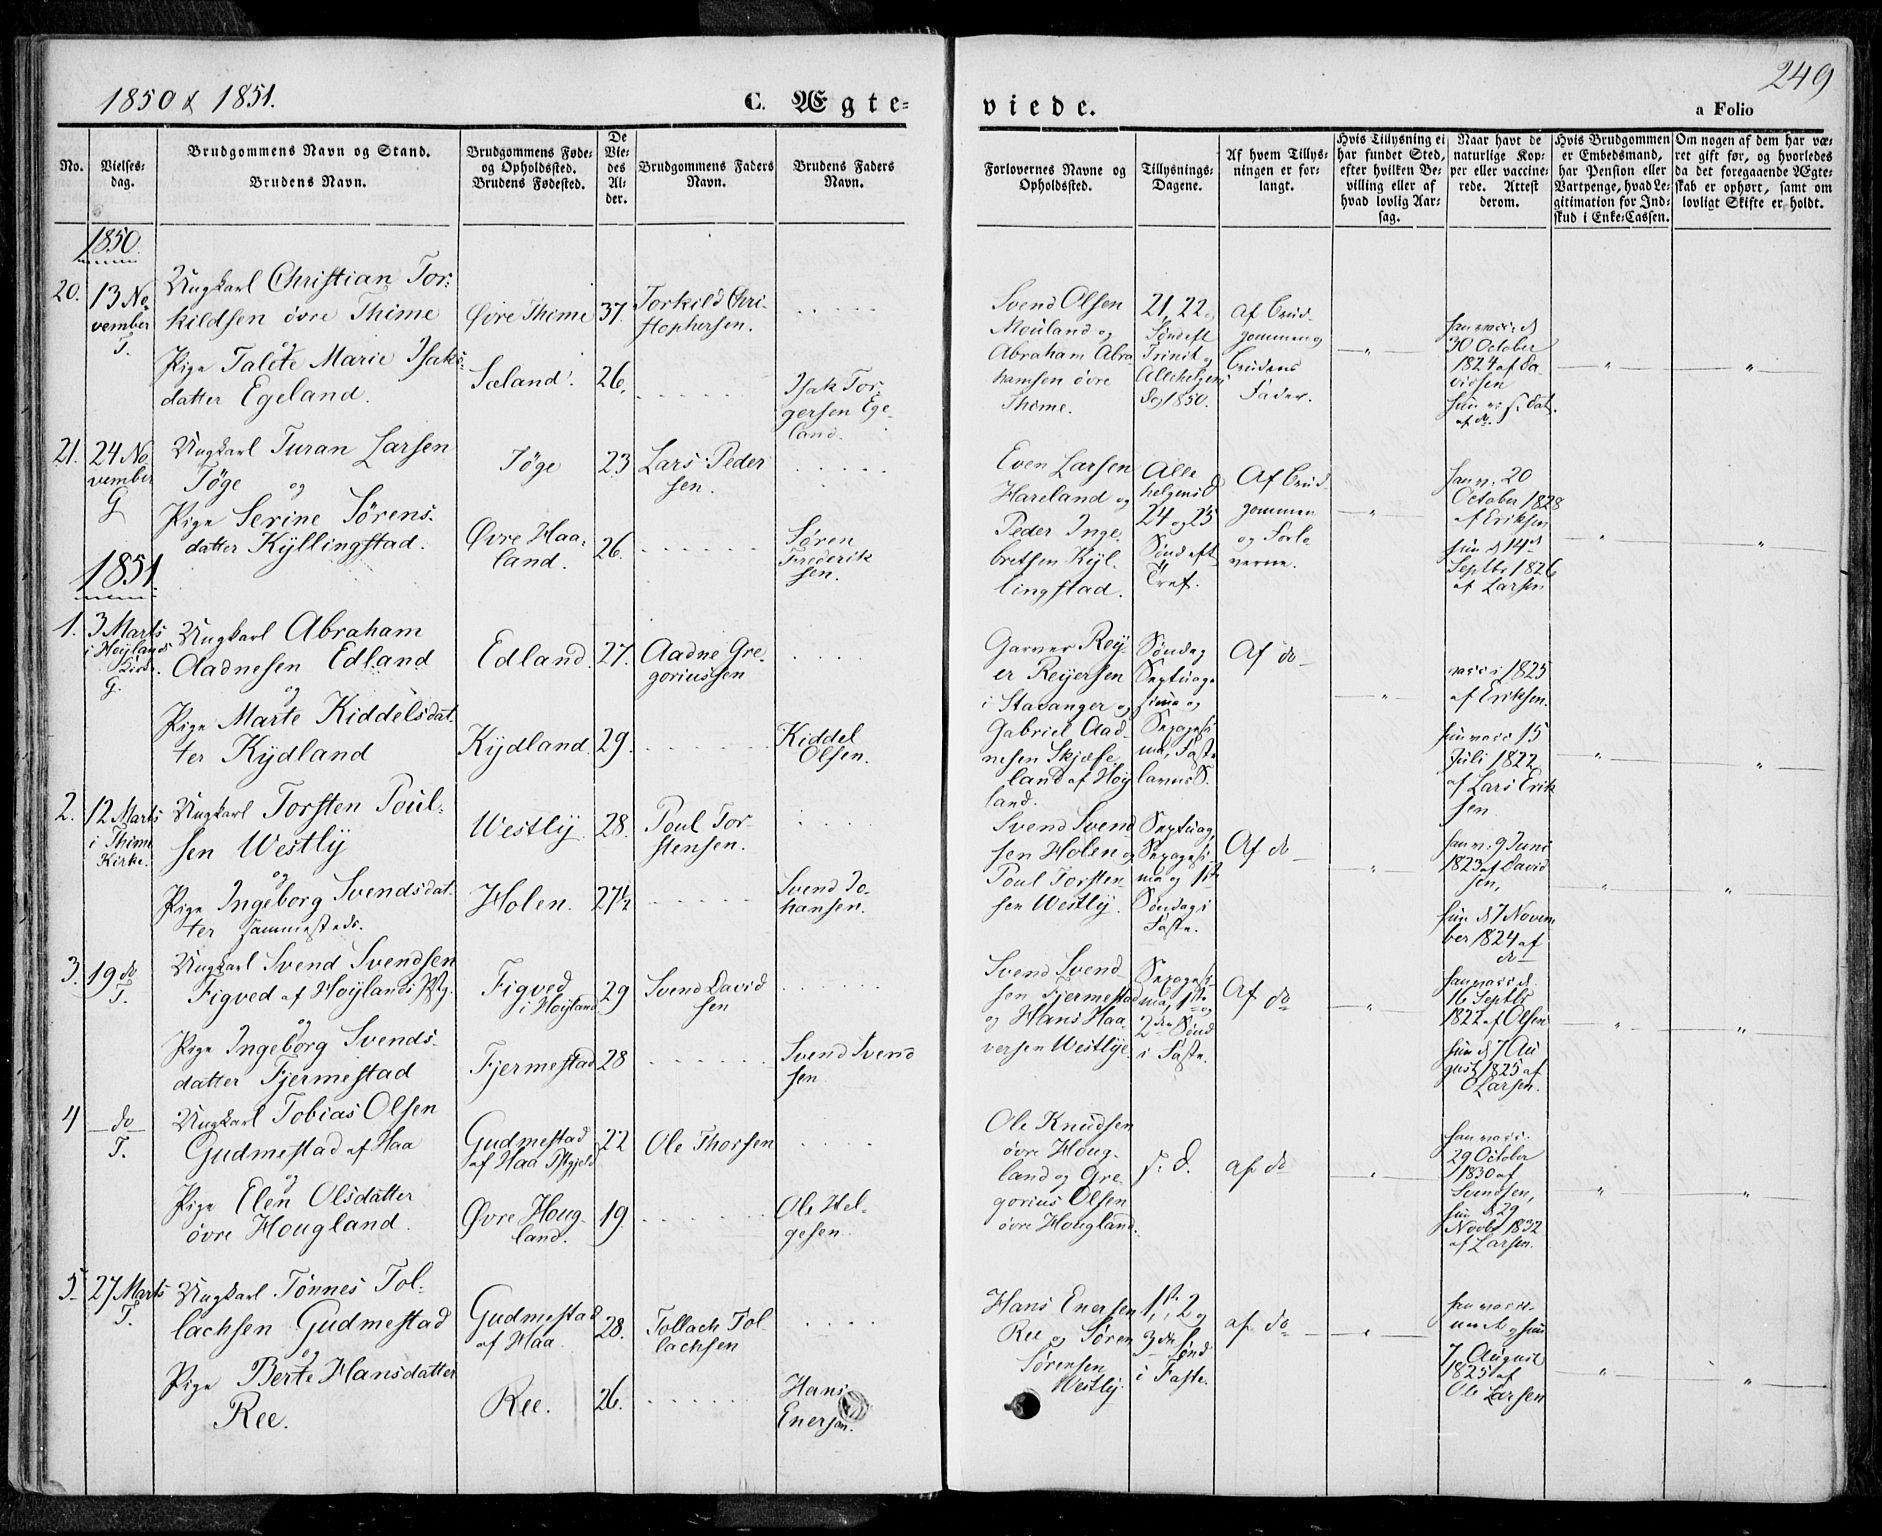 1850 & 1851.
C. Ægte-
viede.
249
a Folio
No.
Vielses-
dag.
Brudgommens Navn og Stand.
Brudens Navn.
Brudgommens Føde-
og Opholdssted.
Brudens Fødested.
De
Vie-
des
Al-
der.
Brudgommens Faders
Navn.
Brudens Faders
Navn.
Forlovernes Navne og
Opholdssted.
Tillysnings-
Dagene.
Af hvem Tillys-
ningen er for-
langt.
Hvis Tillysning ei
har fundet Sted,
efter hvilken Be-
villing eller af
hvad lovlig Aar-
sag.
Naar havt de
naturlige Kop-
per eller vaccine-
rede. Attest
derom.
Hvis Brudgommen
er Embedsmand,
har Pension eller
Vartpenge, hvad Le-
gitimation for Ind-
skud i Enke-Cassen.
Om nogen af dem har væ-
ret gift før, og hvorledes
da det foregaaende Ægte-
skab er ophørt, samt om
lovligt Skifte er holdt.
1850.
20.
13 No
vember
T.
Ungkarl Christian Tor-
kildsen øvre Thime
og
Pige Talete Marie Isaks-
datter Egeland.
Øvre Thime
Sæland
37.
26.
Torkild Chri-
stophersen.
Isak Tor-
gersen Ege-
land.
Svend Olsen
Mouland og
Abraham Abra
hamsen øvre
Thime.
21, 22 og
Søndeft
Trinit og
Allehelgens
Dag 1850.
Af Brud-
gommen og
Brudens
Fader.
han vacc: d
30 October
1824 af Da-
vidsen
hun v: s. Dat.
af do.
21.
24 No
vember
G
Ungkarl Turan Larsen
Tøge og
Pige Serine Sørens-
datter Kyllingstad.
Tøge
Øvre Haa-
land.
23
26.
Lars Peder
sen.
Søren
Frederik
sen.
Even Larsen
Hareland og
Peder Inge-
bretsen Kyl-
lingstad.
Alle
helgens D
24 og 25
Sønd eft
Tref.
Af Brud-
gommen
og Forlo
verne.
han v: 20
October 1828
af Eriksen
hun d 14de
Septbr 1826
af Larsen
1851.
1.
3 Marts
i Høylands
Kirke.
G.
Ungkarl Abraham
Aadnesen Edland
og
Pige Marte Kiddelsdat-
ter Kydland
Edland.
Kydland
27.
29.
Aadne Gre-
goriussen
Kiddel
Olsen.
Garner Rey-
er Reyersen
i Stavanger og
Gabriel Aad-
nesen Skjæfe-
land af Høy
land.
Søndag
Septuage
sima og
Sexagesi
ma, Faste
lavns S.
Af do
vacc: 1825
af Eriksen.
hun vacc 15
Juli 1822
af Lars Erik
sen
2.
12 Marts
i Thime
Kirke.
Ungkarl Torsten Poul-
sen Westly
og
Pige Ingeborg Svendsdat-
ter sammesteds.
Westly
Holen.
28.
27½
Poul Tor-
stensen.
Svend Jo-
hansen.
Svend Svend
sen Holen og
Poul Torsten-
sen Westly.
Septuag,
Sexagesi
ma og 1ste
Søndag i
Faste.
Af do
han v: 9 Juni
1823 af David
sen,
hun d 7 Novem
ber 1824 af
do
3.
19 do
T.
Ungkarl Svend Svendsen
Figved af Høylands Pstg.
og
Pige Ingeborg Svends-
datter Fjermestad
Figved
i Høyland
Fjermestad
29
28
Svend David
sen
Svend Svend
sen
Svend Svend-
sen Fjermestad
og Hans Haa-
versen Westlye.
Sexagesi
ma, 1ste og
2den Sønd
i Faste.
Af do
han vacc d.
16 Septbr
1822 af Olsen
hun d 7 Au
gust 1825 af
O Larsen.
4
do
T.
Ungkarl Tobias Olsen
Gudmestad af Haa
og
Pige Elen Olsdatter
øvre Hougland.
Gudmestad
af Haa Pstgjeld
Øvre Houg-
land.
22
19
Ole Thorsen
Ole Hel-
gesen
Ole Knudsen
øvre Houg-
land og Gre-
gorius Olsen
øvre Hougland.
s. D.
af do
han vacc.
29 October
1830 af
Svendsen,
hun d 29
Novbr 1832
af Larsen.
5
27 Marts
T.
Ungkarl Tønnes Tol-
lachsen Gudmestad
og
Pige Berte Hansdatter
Ree.
Gudmestad
af Haa
Ree.
28.
26.
Tollach Tol
lachsen
Hans
Enersen.
Hans Enersen
Ree og Søren
Sørensen
Westly.
1ste, 2 og
3de Sønd
i Faste.
af do
7 August
1825 af
Ole Larsen